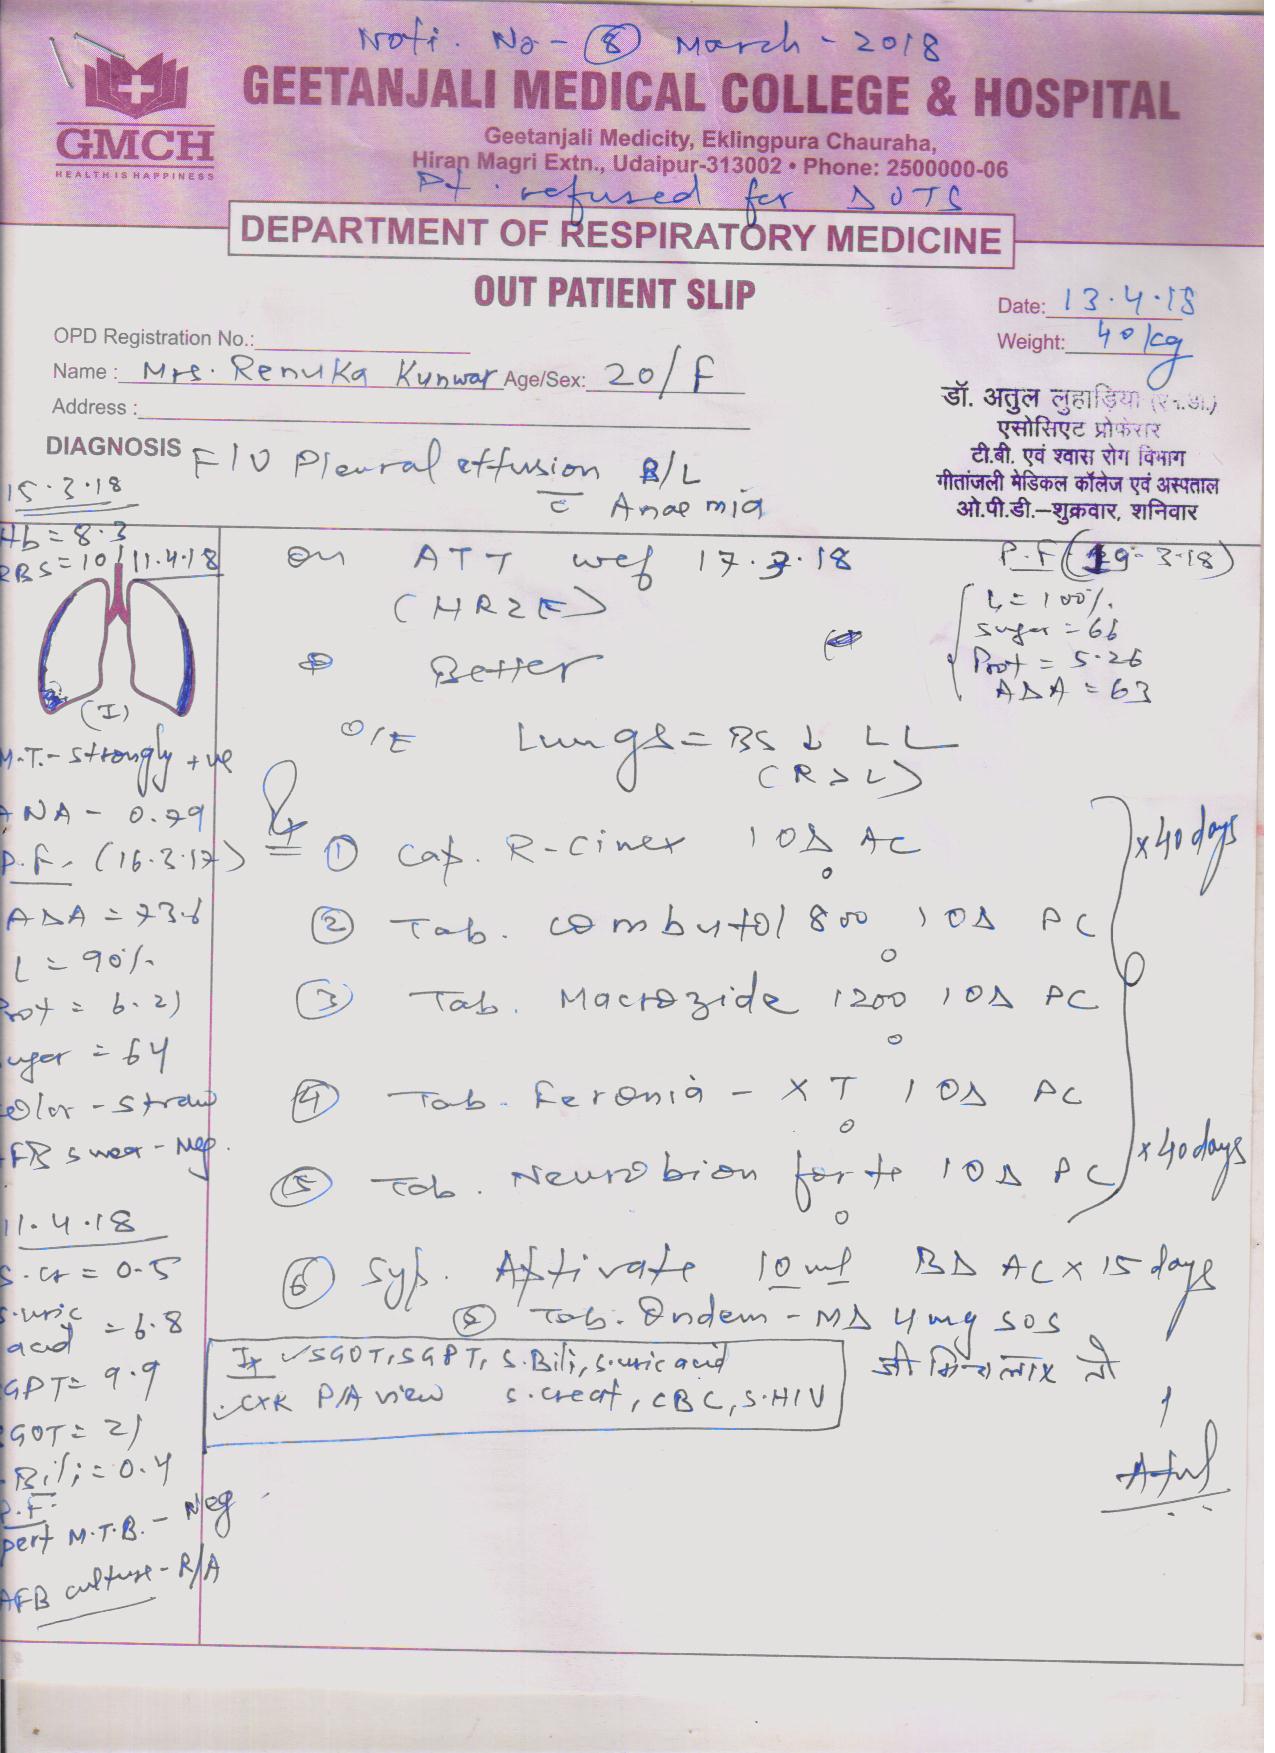 Noti. No - 8 March - 2018
GEETANJALI MEDICAL COLLEGE & HOSPITAL
GMCH
HEALTH IS HAPPINESS
Geetanjali Medicity, Eklingpura Chauraha,
Hiran Magri Extn., Udaipur-313002 • Phone: 2500000-06
Pt. refused for DOTS
DEPARTMENT OF RESPIRATORY MEDICINE
OUT PATIENT SLIP
Date: 13.4.18
OPD Registration No.:
Weight: 40 kg
Name : Mrs. Renuka Kunwar Age/Sex: 20/F
Address :
डॉ. अतुल लुहाड़िया (एम.डी.)
एसोसिएट प्रोफेसर
टी.बी. एवं श्वास रोग विभाग
गीतांजली मेडिकल कॉलेज एवं अस्पताल
ओ.पी.डी.–शुक्रवार, शनिवार
DIAGNOSIS F/U Pleural effusion B/L
c Anaemia
15.3.18
Hb = 8.3
RBS = 101
11.4.18
(I)
M.T. - strongly +ve
ANA - 0.79
P.F. (16.3.17)
ADA = 73.6
L = 90%
Prot = 6.21
Sugar = 64
Color - straw
AFB smear - Neg.
11.4.18
S.Cr = 0.5
S.uric acid = 6.8
SGPT = 9.9
SGOT = 21
S.Bili = 0.4
P.F.
Xpert M.T.B. - Neg
AFB culture - R/A
On ATT wef 17.3.18
(HRZE)
Better
P.F (19-3-18)
L = 100%
Sugar = 66
Prot = 5.26
ADA = 63
O/E Lungs = BS ↓ LL
(R>L)
Rx
① Cap. R-Cinex 1 OD AC
② Tab. Combutol 800 1 OD PC
③ Tab. Macrozide 1200 1 OD PC
④ Tab. Feronia - XT 1 OD PC
⑤ Tab. Neurobion forte 1 OD PC
x 40 days
x 40 days
⑥ Syp. Aptivate 10 ml BD AC x 15 days
Tab. Ondem - MD 4mg SOS
Ix ✓SGOT, SGPT, S.Bili, S.uric acid
✓CXR P/A view S.creat, CBC, S.HIV
Atul